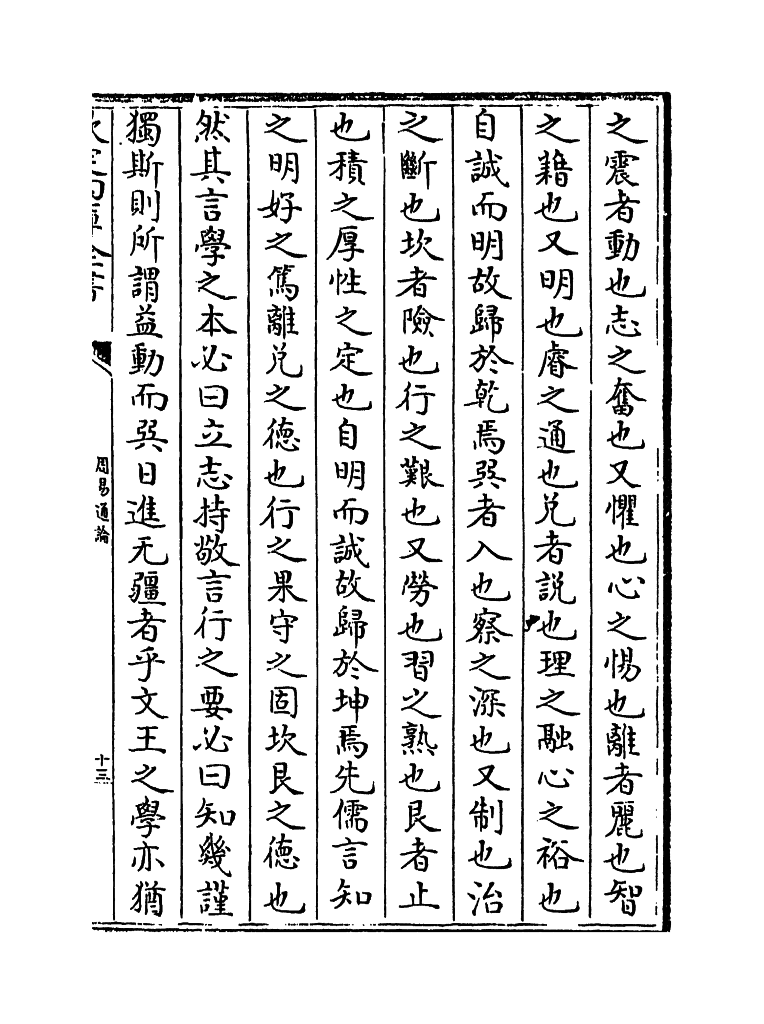 之震者動也志之奮也又懼也心之惕也離者麗也智
之藉也又明也睿之通也兑者説也理之融心之裕也
自誠而明故歸於乾焉巽者入也察之深也又制也治
之斷也坎者險也行之艱也又勞也習之熟也艮者止
也積之厚性之定也自明而誠故歸於坤焉先儒言知
之明好之篤離兑之德也行之果守之固坎艮之德也
然其言學之本必曰立志持敬言行之要必曰知幾謹
獨斯則所謂益動而巽日進无疆者乎文王之學亦猶
周易通論
十三